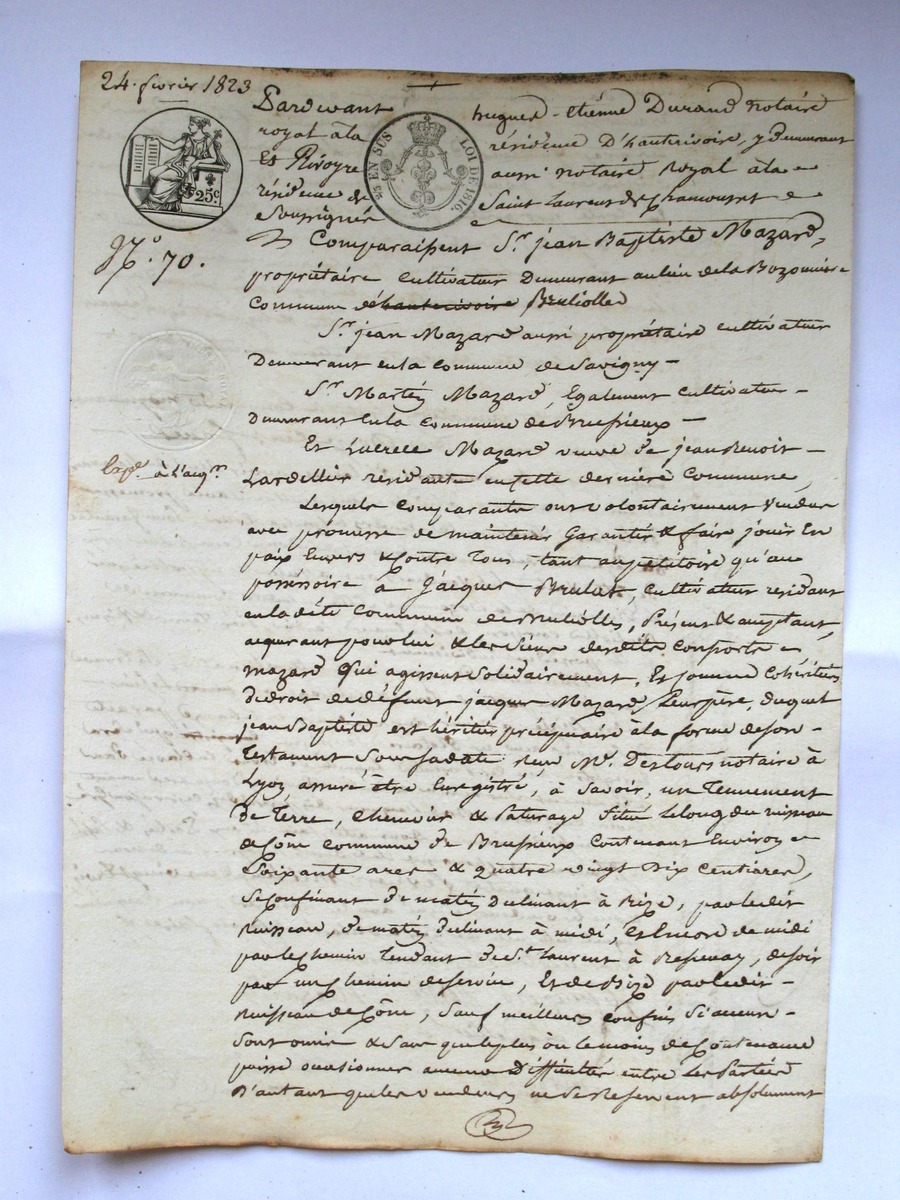 24. fevrier 1823
25 EN SUS LOI DE 1816.
25c.
N.º 70.
Exp.e à l'acq.r
Pardevant hugues - Etienne Durand notaire
royal à la résidence D'hauterivoire, y demeurant
Et Rivoyre aussi notaire Royal à la
résidence de Saint Laurent de Chamousset
Soussignés
Comparaissent S.r jean Baptiste Mazard,
propriétaire cultivateur Demeurant au lieu de la Bozonniere
commune d'hauterivoire Bruliolles
S.r jean Mazard aussi propriétaire cultivateur
Demeurant en la commune de Savigny
S.r Martin Mazard, Egalement cultivateur
Demeurant En la commune de Brussieux
Et Lucrece Mazard veuve de jean Benoit
Lardellier résidante en cette derniere commune,
Lesquels comparants ont volontairement vendu
avec promesse de maintenir Garantir & faire jouir En
paix Envers & Contre tous, tant au petitoire qu'au
possessoire à Jacques Brulat, cultivateur residant
en la dite commune de Brulliolles, Présent & acceptant,
acquerant pour lui & les siens desdits consorts
mazard qui agissent solidairement, Et comme Cohéritiers
de droit de défunt jacques Mazard leur père, duquel
jean Baptiste est héritier préciputaire à la forme de son
Testament sous sa date reçu M.e Destours notaire à
Lyon, assuré être Enregistré, à savoir, un Tennement
de Terre, chenevier & Paturage situé le long du ruisseau
de Cône commune de Brussieux Contenant Environ
Soixante ares & quatre vingt Dix Centiares,
se confinant de matin declinant à Bize, par ledit
Ruisseau, de matin declinant à midi, Et Encore de midi
par le chemin tendant de S.t Laurent à Bessenay, de soir
par un chemin de service, Et de Bize par ledit
Ruisseau de Cône, sauf meilleurs confins si aucuns
sont omis & sans que le plus ou le moins de Contenance
puisse occasionner aucune Difficultés entre les Parties
D'autant que les vendeurs ne se Reservent absolument